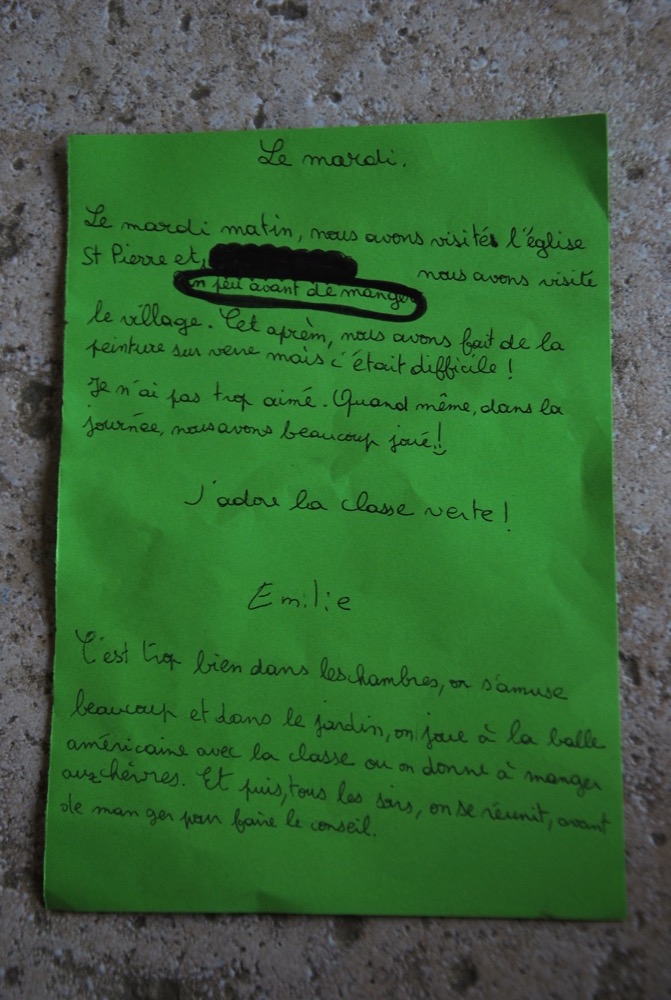 Le mardi.
Le mardi matin, nous avons visités l'église
St Pierre et, nous avons visité
un peu avant de manger
le village. Cet aprèm, nous avons fait de la
peinture sur verre mais c'était difficile !
Je n'ai pas trop aimé. Quand même, dans la
journée, nous avons beaucoup joué !!
J'adore la classe verte !
Emilie
C'est trop bien dans les chambres, on s'amuse
beaucoup et dans le jardin, on joue à la balle
américaine avec la classe ou on donne à manger
aux chèvres. Et puis, tous les soirs, on se réunit, avant
de manger pour faire le conseil.